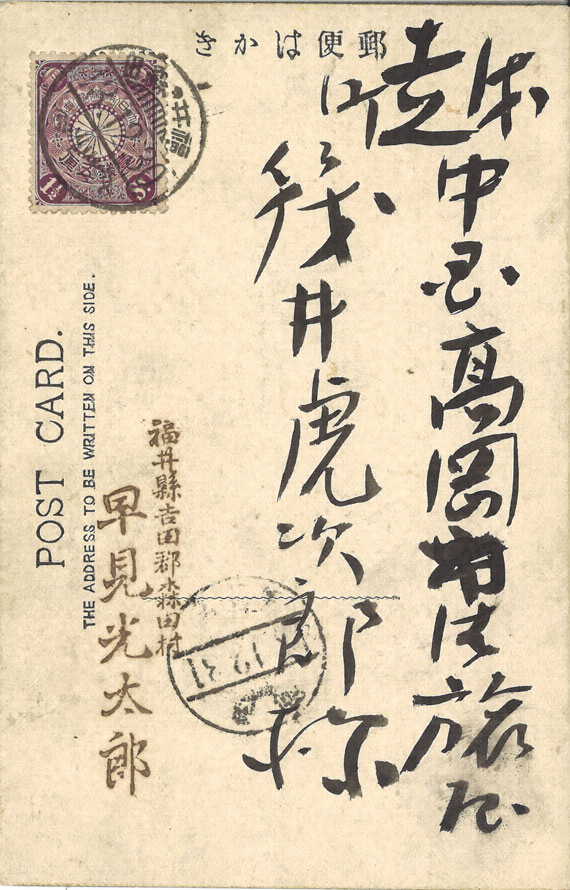 郵便はかき
越中国高岡市御旅屋
町
筏井虎次郎様
福井縣吉田郡森田村
早見光太郎
POST CARD.
THE ADDRESS TO BE WRITTEN ON THIS SIDE.